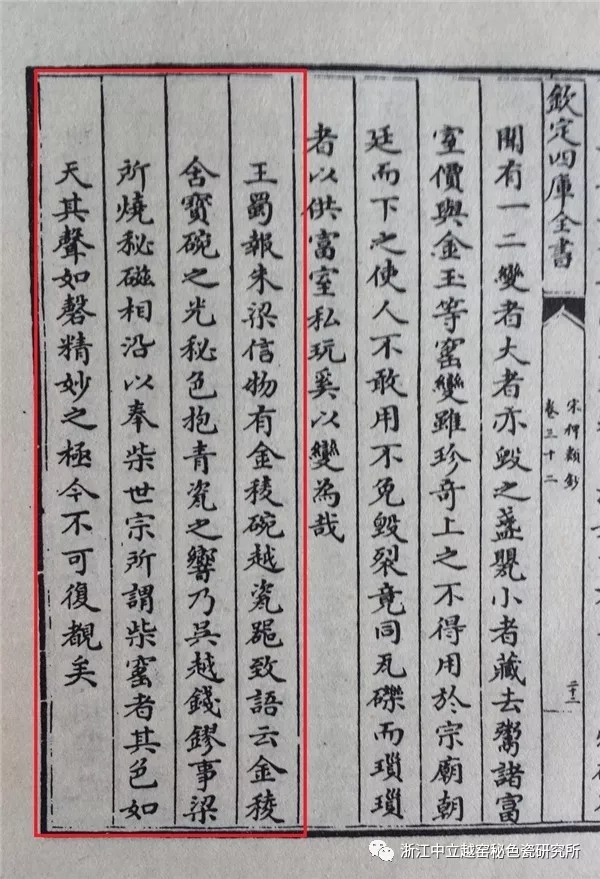 欽定四庫全書
宋稗類鈔
卷三十二
二十三
聞有一二變者大者亦毀之盞甖小者藏去鬻諸富
室價與金玉等窰變雖珍奇上之不得用於宗廟朝
廷而下之使人不敢用不免毀裂竟同瓦礫而瑣瑣
者以供富室私玩奚以變為哉
王蜀報朱梁信物有金稜碗越瓷器致語云金稜
含寶碗之光秘色抱青瓷之響乃吳越錢鏐事梁
所燒秘磁相沿以奉柴世宗所謂柴窰者其色如
天其聲如磬精妙之極今不可復覩矣
浙江中立越窑秘色瓷研究所